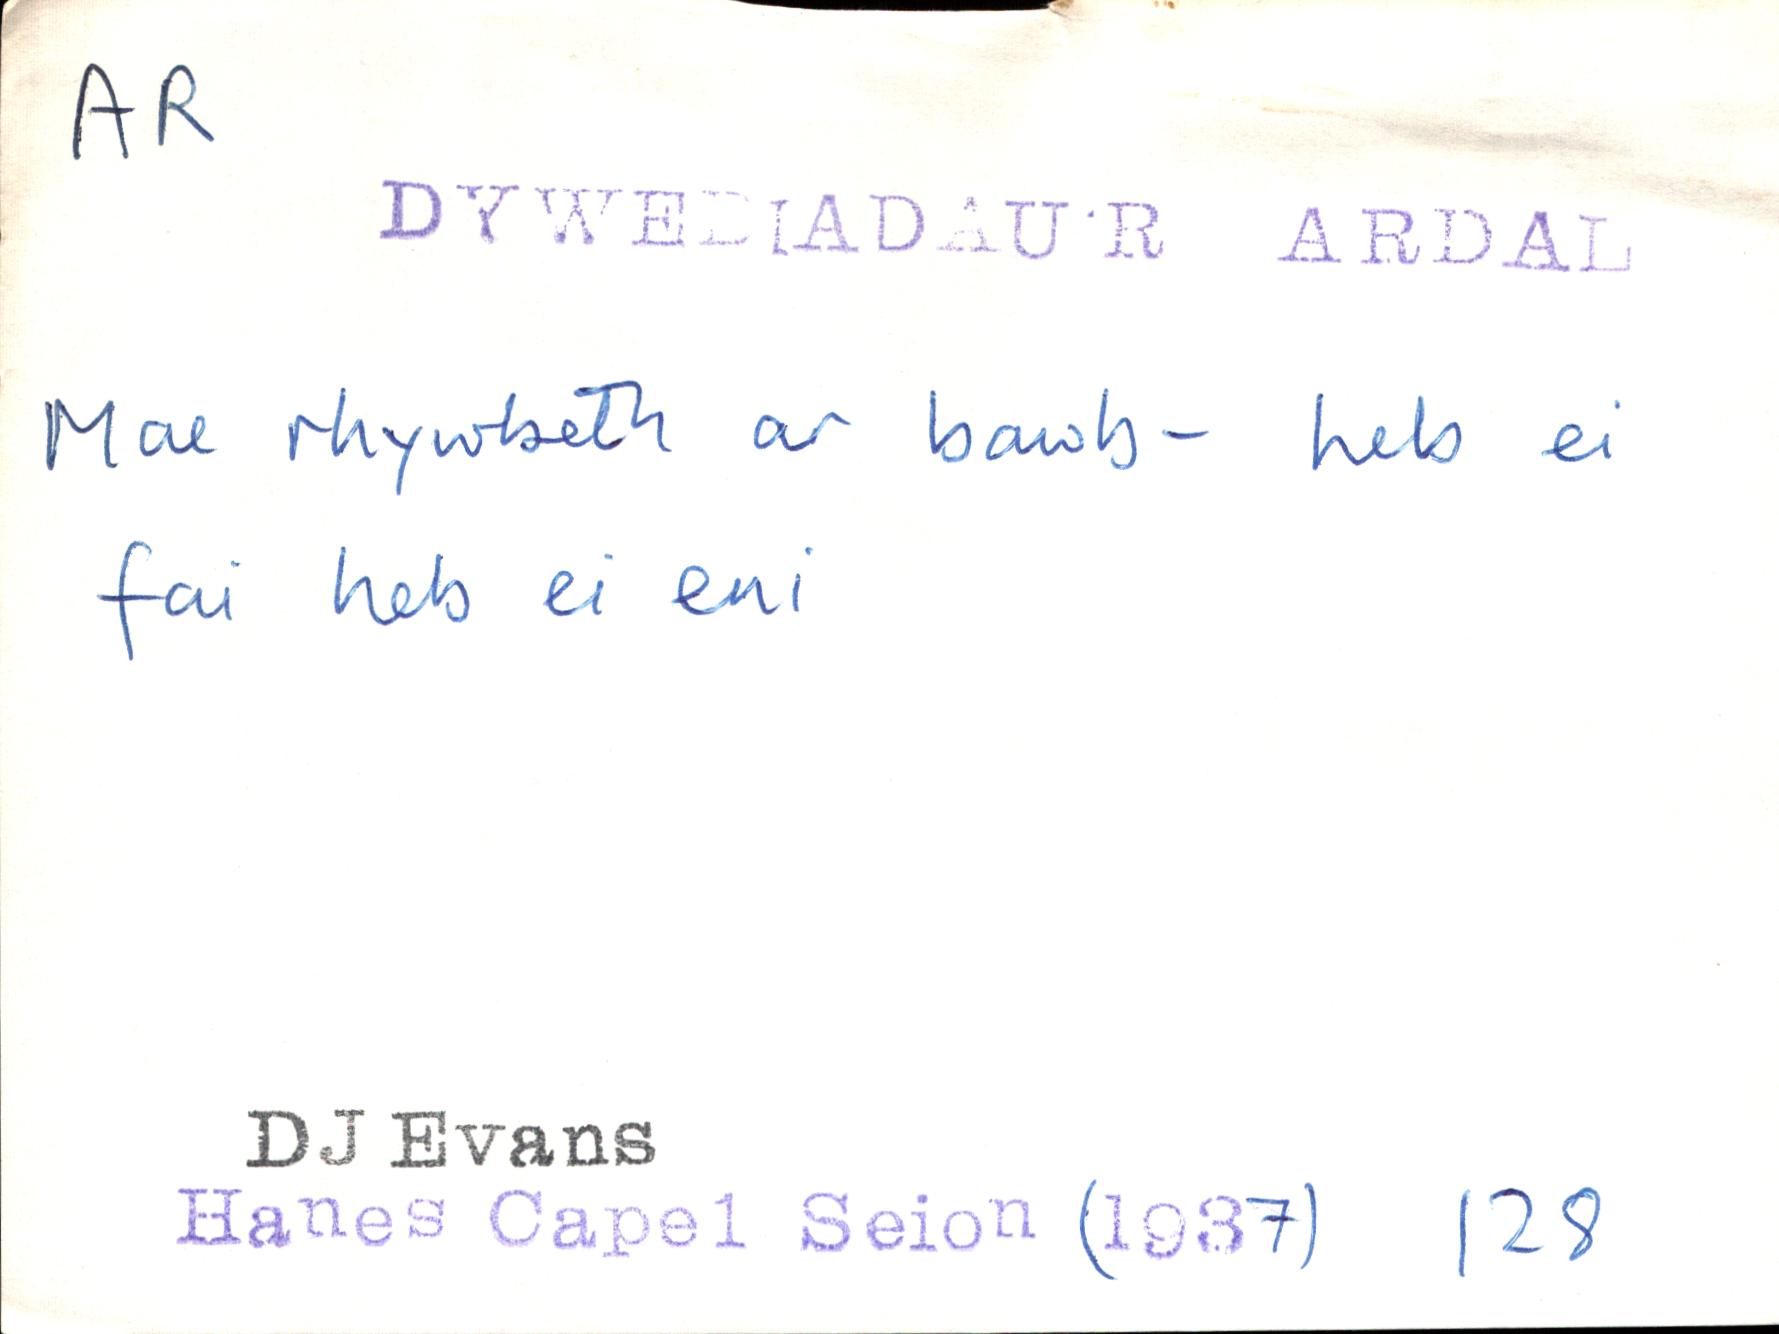 AR
DYWEDIADAU'R ARDAL
Mae rhywbeth ar bawb - heb ei
fai heb ei eni
DJ Evans
Hanes Capel Seion (1937) 128